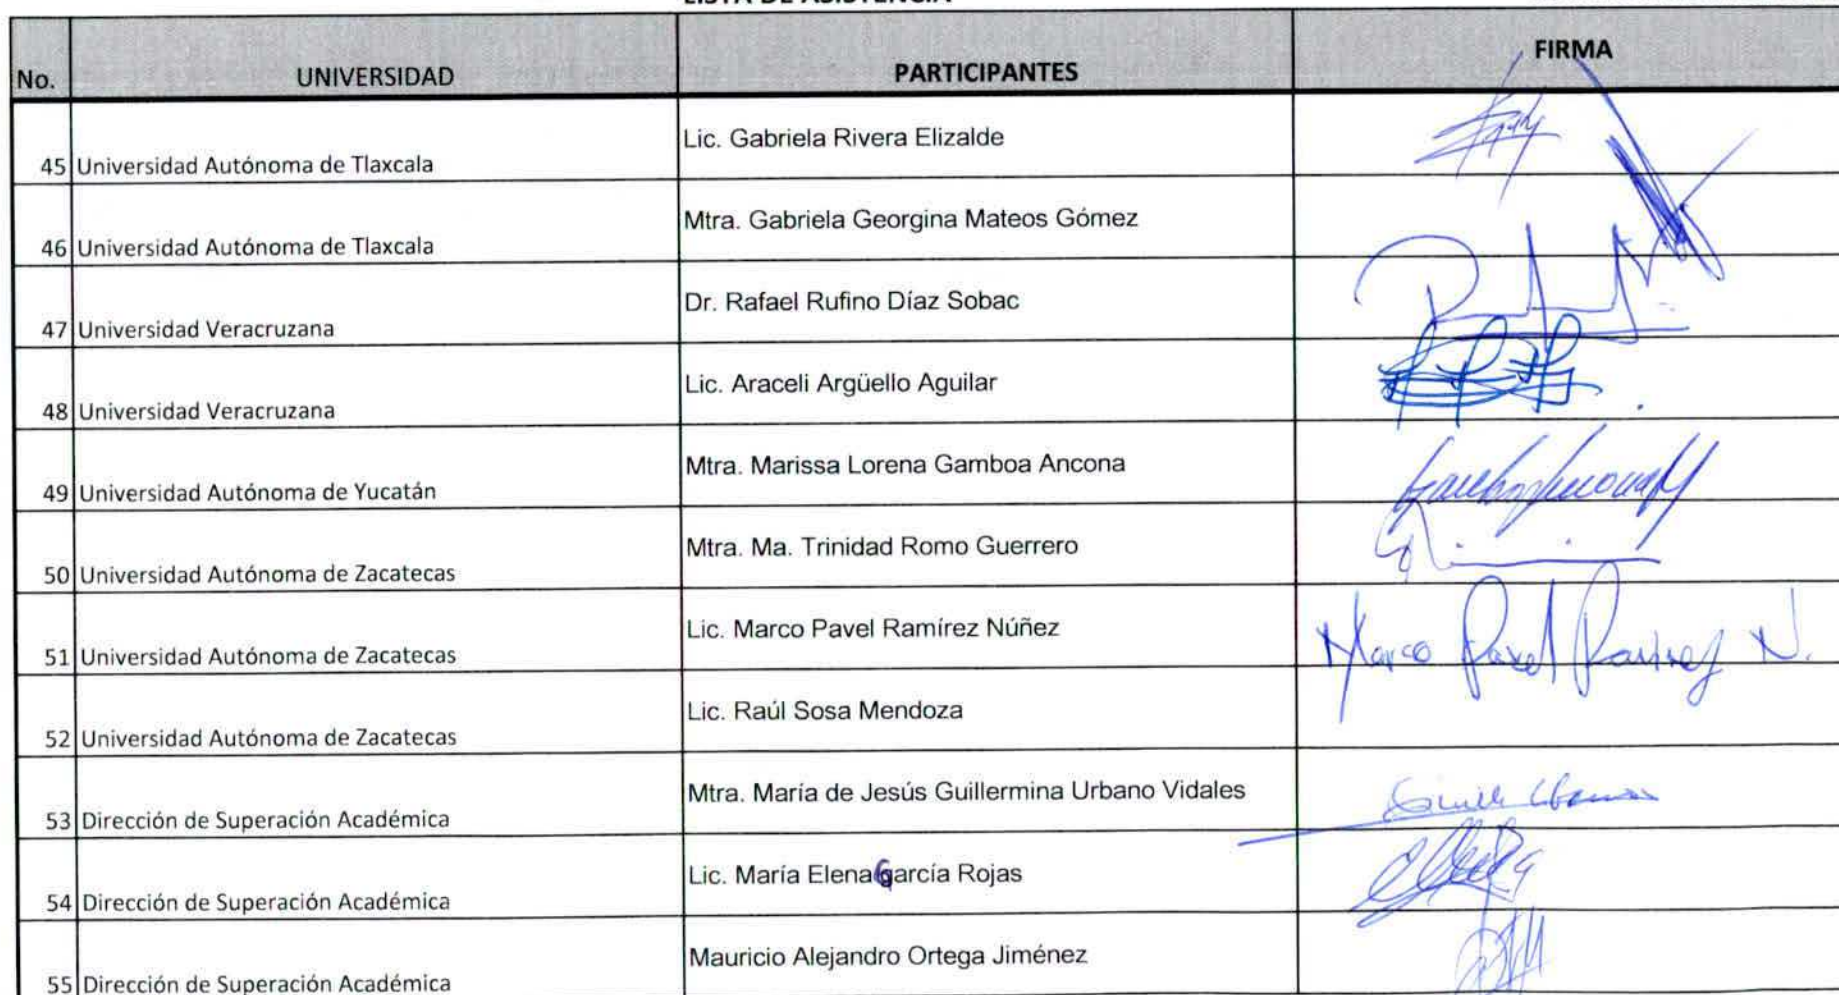 LISTA DE ASISTENCIA
No. UNIVERSIDAD PARTICIPANTES FIRMA
45 Universidad Autónoma de Tlaxcala Lic. Gabriela Rivera Elizalde
46 Universidad Autónoma de Tlaxcala Mtra. Gabriela Georgina Mateos Gómez
47 Universidad Veracruzana Dr. Rafael Rufino Díaz Sobac
48 Universidad Veracruzana Lic. Araceli Argüello Aguilar
49 Universidad Autónoma de Yucatán Mtra. Marissa Lorena Gamboa Ancona
50 Universidad Autónoma de Zacatecas Mtra. Ma. Trinidad Romo Guerrero
51 Universidad Autónoma de Zacatecas Lic. Marco Pavel Ramírez Núñez Marco Pavel Ramirez N.
52 Universidad Autónoma de Zacatecas Lic. Raúl Sosa Mendoza
53 Dirección de Superación Académica Mtra. María de Jesús Guillermina Urbano Vidales
54 Dirección de Superación Académica Lic. María Elena García Rojas
55 Dirección de Superación Académica Mauricio Alejandro Ortega Jiménez